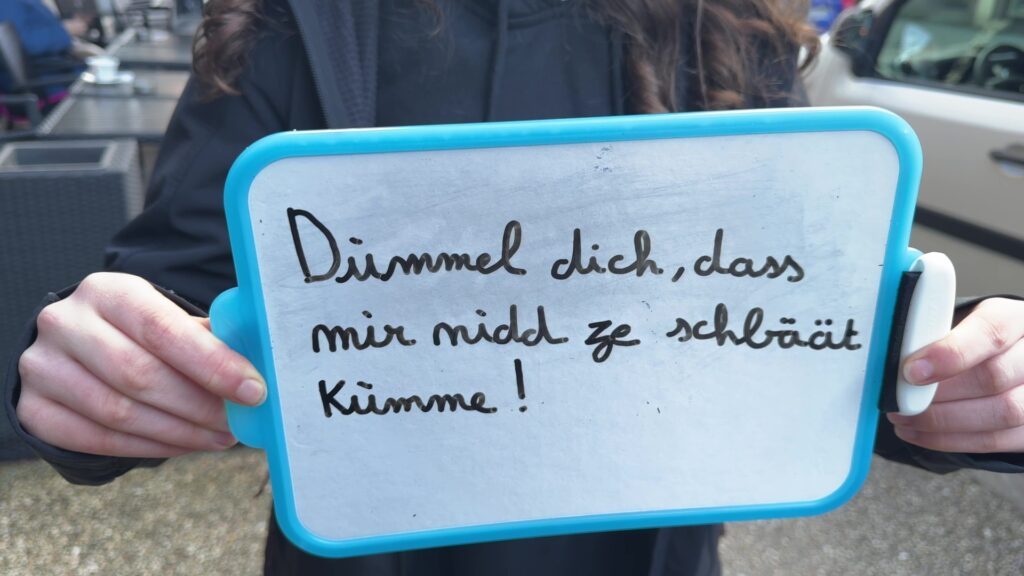 Dùmmel dich, dass
mir nidd ze schbäät
kùmme!